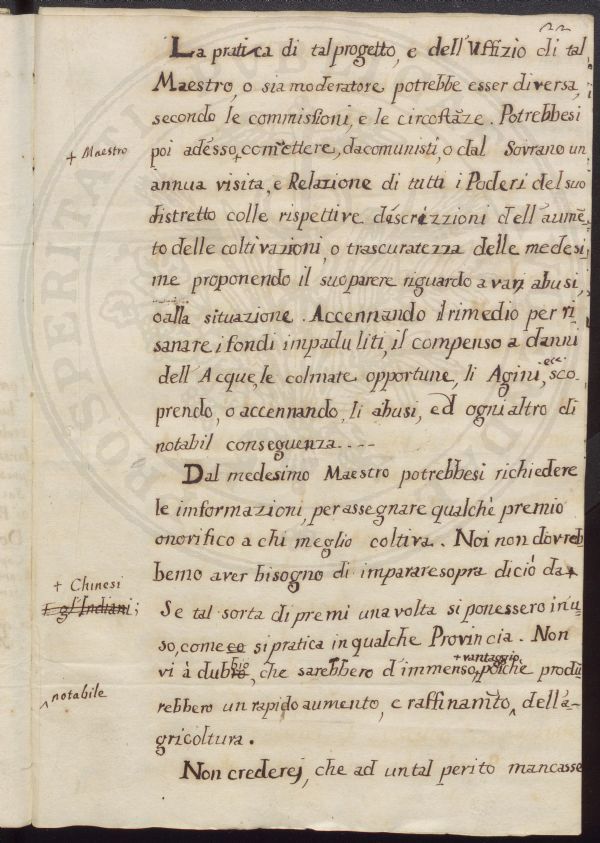 22
La pratica di tal progetto, e dell'Uffizio di tal
Maestro, o sia moderatore potrebbe esser diversa,
secondo le commissioni, e le circostãze. Potrebbesi
+ Maestro
poi adesso + com̃ettere, da comunisti, o dal Sovrano un
annua visita, e Relazione di tutti i Poderi del suo
distretto colle rispettive descrizzioni dell'aumẽ
to delle coltivazioni, o trascuratezza delle medesi
me proponendo il suo parere riguardo a varj abusi,
o alla situazione. Accennando il rimedio per ri
sanare i fondi impaduliti, il compenso a danni
dell'Acque, le colmate opportune, li Agini, ecc. sco-
prendo, o accennando, li abusi, ed ogni altro di
notabil conseguenza....
Dal medesimo Maestro potrebbesi richiedere
le imformazioni, per assegnare qualchè premio
onorifico a chi meglio coltiva. Noi non dovreb
bemo aver bisogno di imparare sopra di ciò da +
+ Chinesi
+ gl'Indiani;
Se tal sorta di premi una volta si ponessero in u-
so, come co si pratica in qualche Provincia. Non
vi à dubrobio, che sarebbero d'immenso + vantaggio, poichè produ
rebbero un rapido aumento, e raffinam̃to ^ dell'a-
^ notabile
gricoltura.
Non crederej, che ad un tal perito mancasse
ROSPERITATI